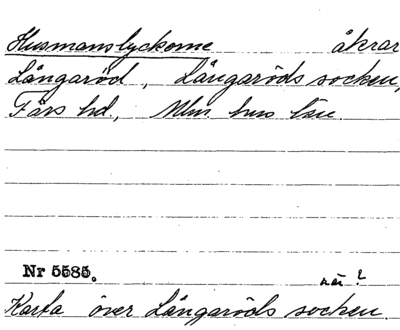 Husmanslyckorne åkrar
Långaröd, Långaröds socken,
Färs hd., Mlm. hus län.
Nr 5585.
när?
Karta över Långaröds socken.